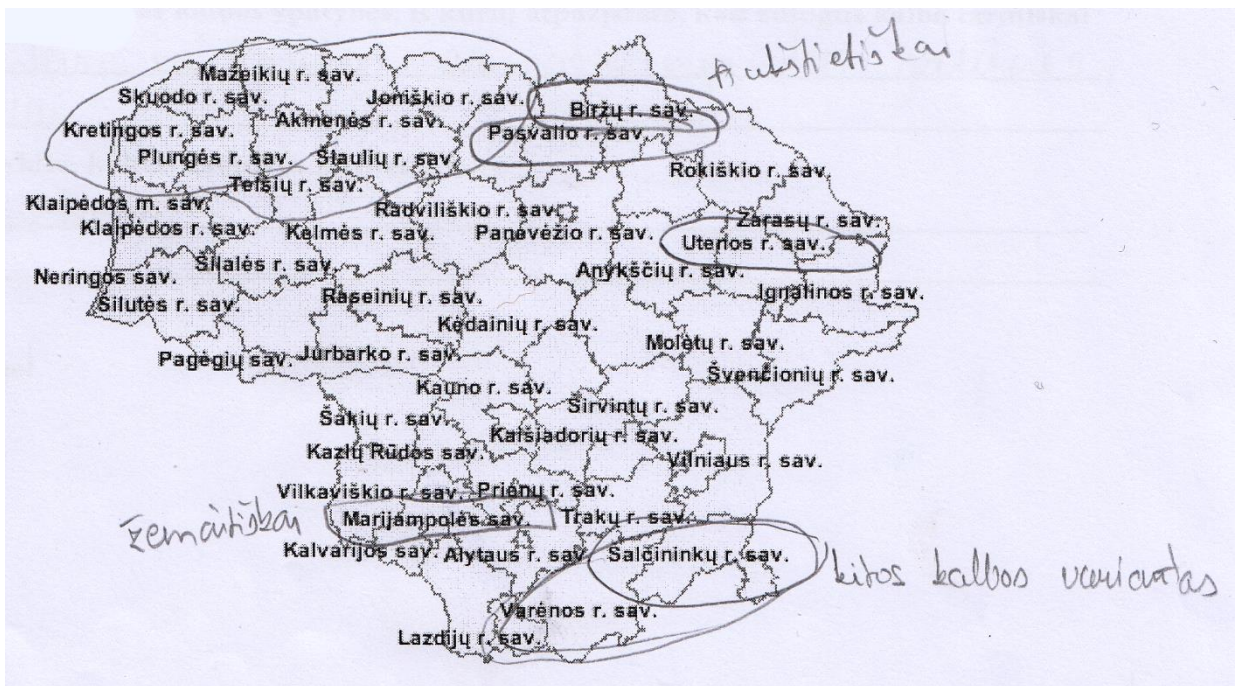 Aukštietiškai
Mažeikių r. sav.
Skuodo r. sav.
Joniškio r. sav.
Biržų r. sav.
Akmenės r. sav.
Kretingos r. sav.
Pasvalio r. sav.
Plungės r. sav.
Šiaulių r. sav.
Rokiškio r. sav.
Telšių r. sav.
Klaipėdos m. sav.
Radviliškio r. sav.
Zarasų r. sav.
Klaipėdos r. sav.
Kelmės r. sav.
Panevėžio r. sav.
Utenos r. sav.
Šilalės r. sav.
Anykščių r. sav.
Neringos sav.
Ignalinos r. sav.
Šilutės r. sav.
Raseinių r. sav.
Kėdainių r. sav.
Molėtų r. sav.
Pagėgių sav.
Jurbarko r. sav.
Švenčionių r. sav.
Kauno r. sav.
Širvintų r. sav.
Šakių r. sav.
Kaišiadorių r. sav.
Kazlų Rūdos sav.
Vilniaus r. sav.
Vilkaviškio r. sav.
Prienų r. sav.
žemaitiškai
Marijampolės sav.
Trakų r. sav.
Kalvarijos sav.
Alytaus r. sav.
Šalčininkų r. sav.
kitos kalbos variantas
Varėnos r. sav.
Lazdijų r. sav.